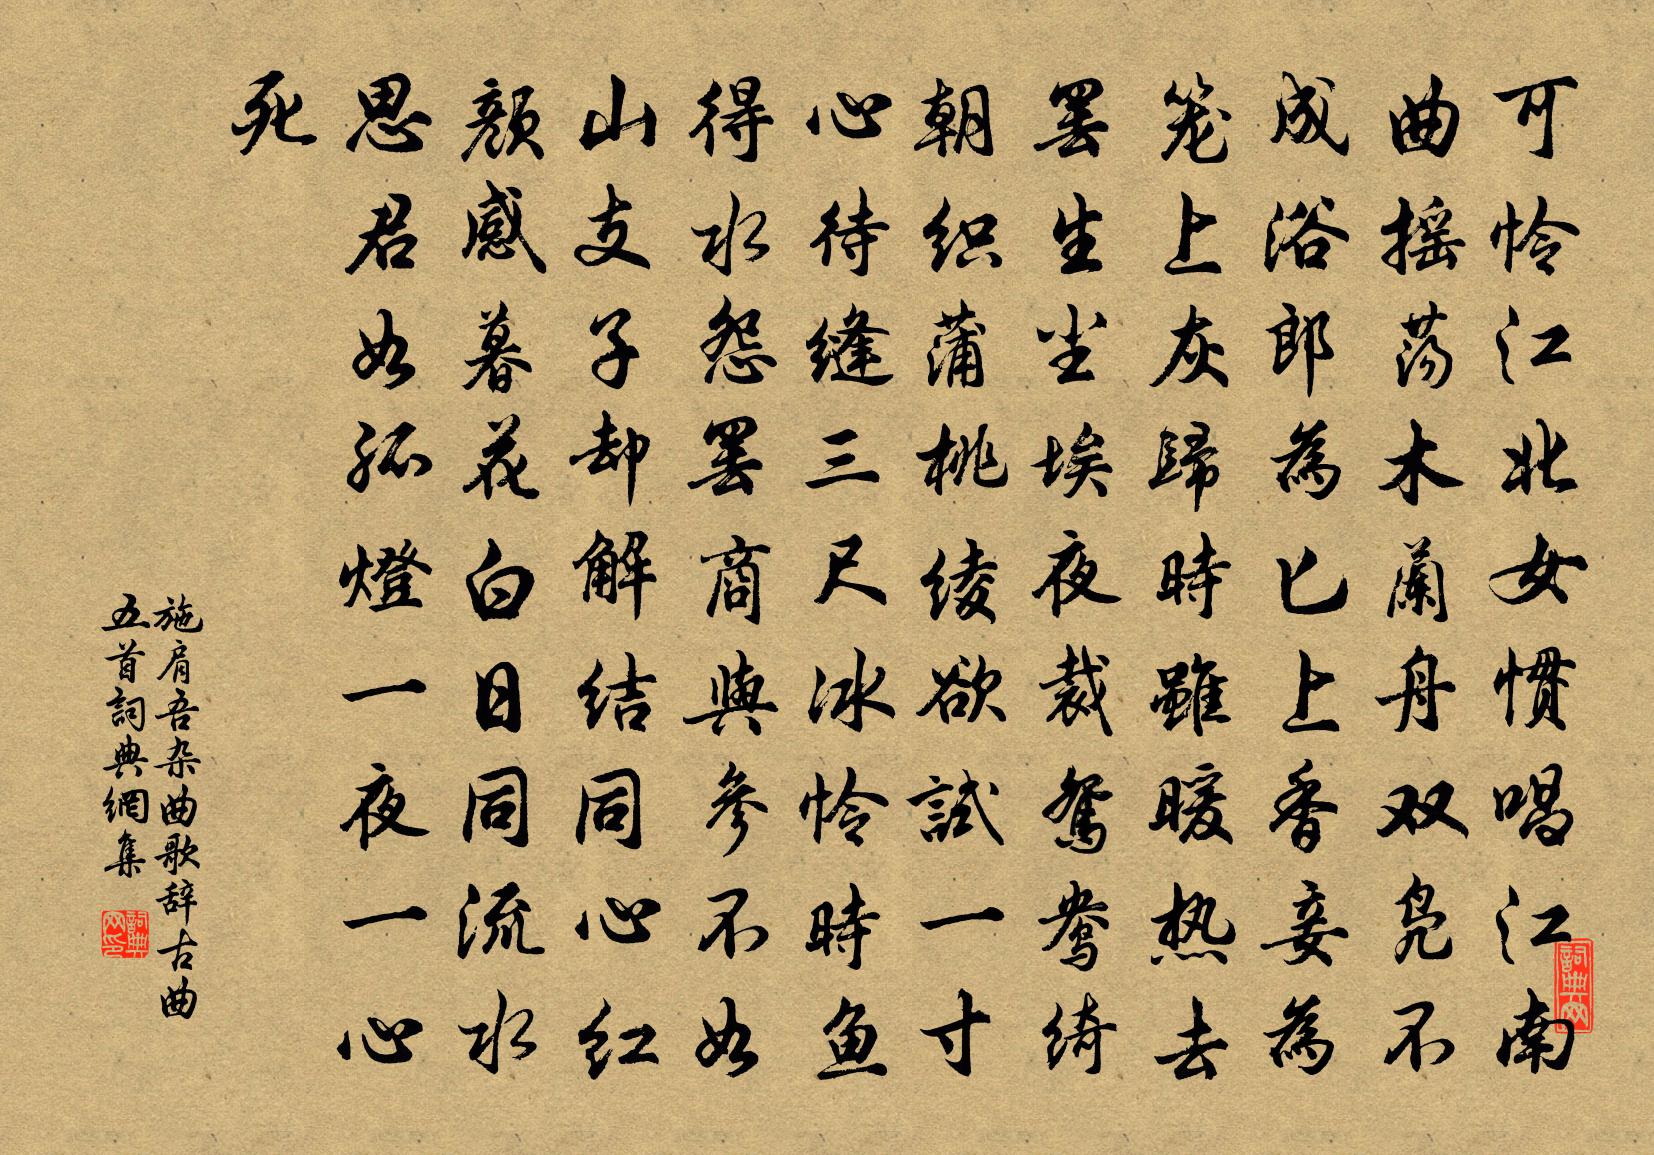 可怜江北女惯唱江南
曲摇荡木蘭舟双凫不
成浴郎為匕上香妾為
笼上灰歸時雖暖热去
罢生尘埃夜裁鸳鸯绮
朝织蒲桃绫欲試一寸
心待缝三尺冰怜時鱼
得水怨罢商與参不如
山支子却解结同心红
颜感暮花白日同流水
思君如孤燈一夜一心
死
施肩吾杂曲歌辞古曲
五首詞典網集
詞典网印
詞典网